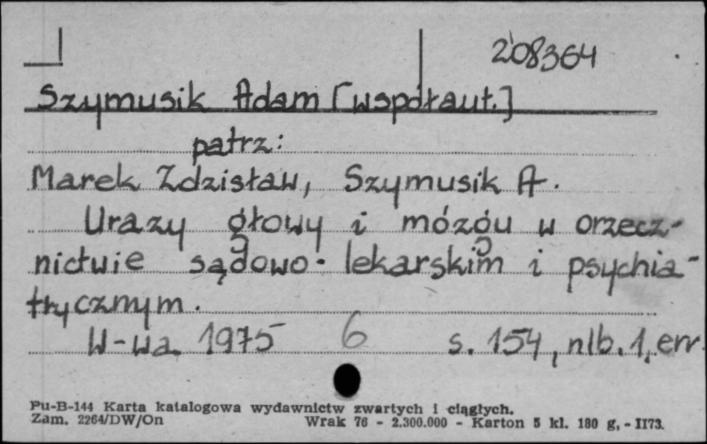 208364
Szymusik Adam [współaut.]
patrz:
Marek Zdzisław, Szymusik A.
Urazy głowy i mózgu w orzecz-
nictwie sądowo-lekarskim i psychia-
trycznym.
W-wa 1975 6 s. 154, nlb. 1, err.
Pu-B-144 Karta katalogowa wydawnictw zwartych i ciągłych.
Zam. 2264/DW/On Wrak 76 - 2.300.000 - Karton 5 kl. 180 g. - II73.